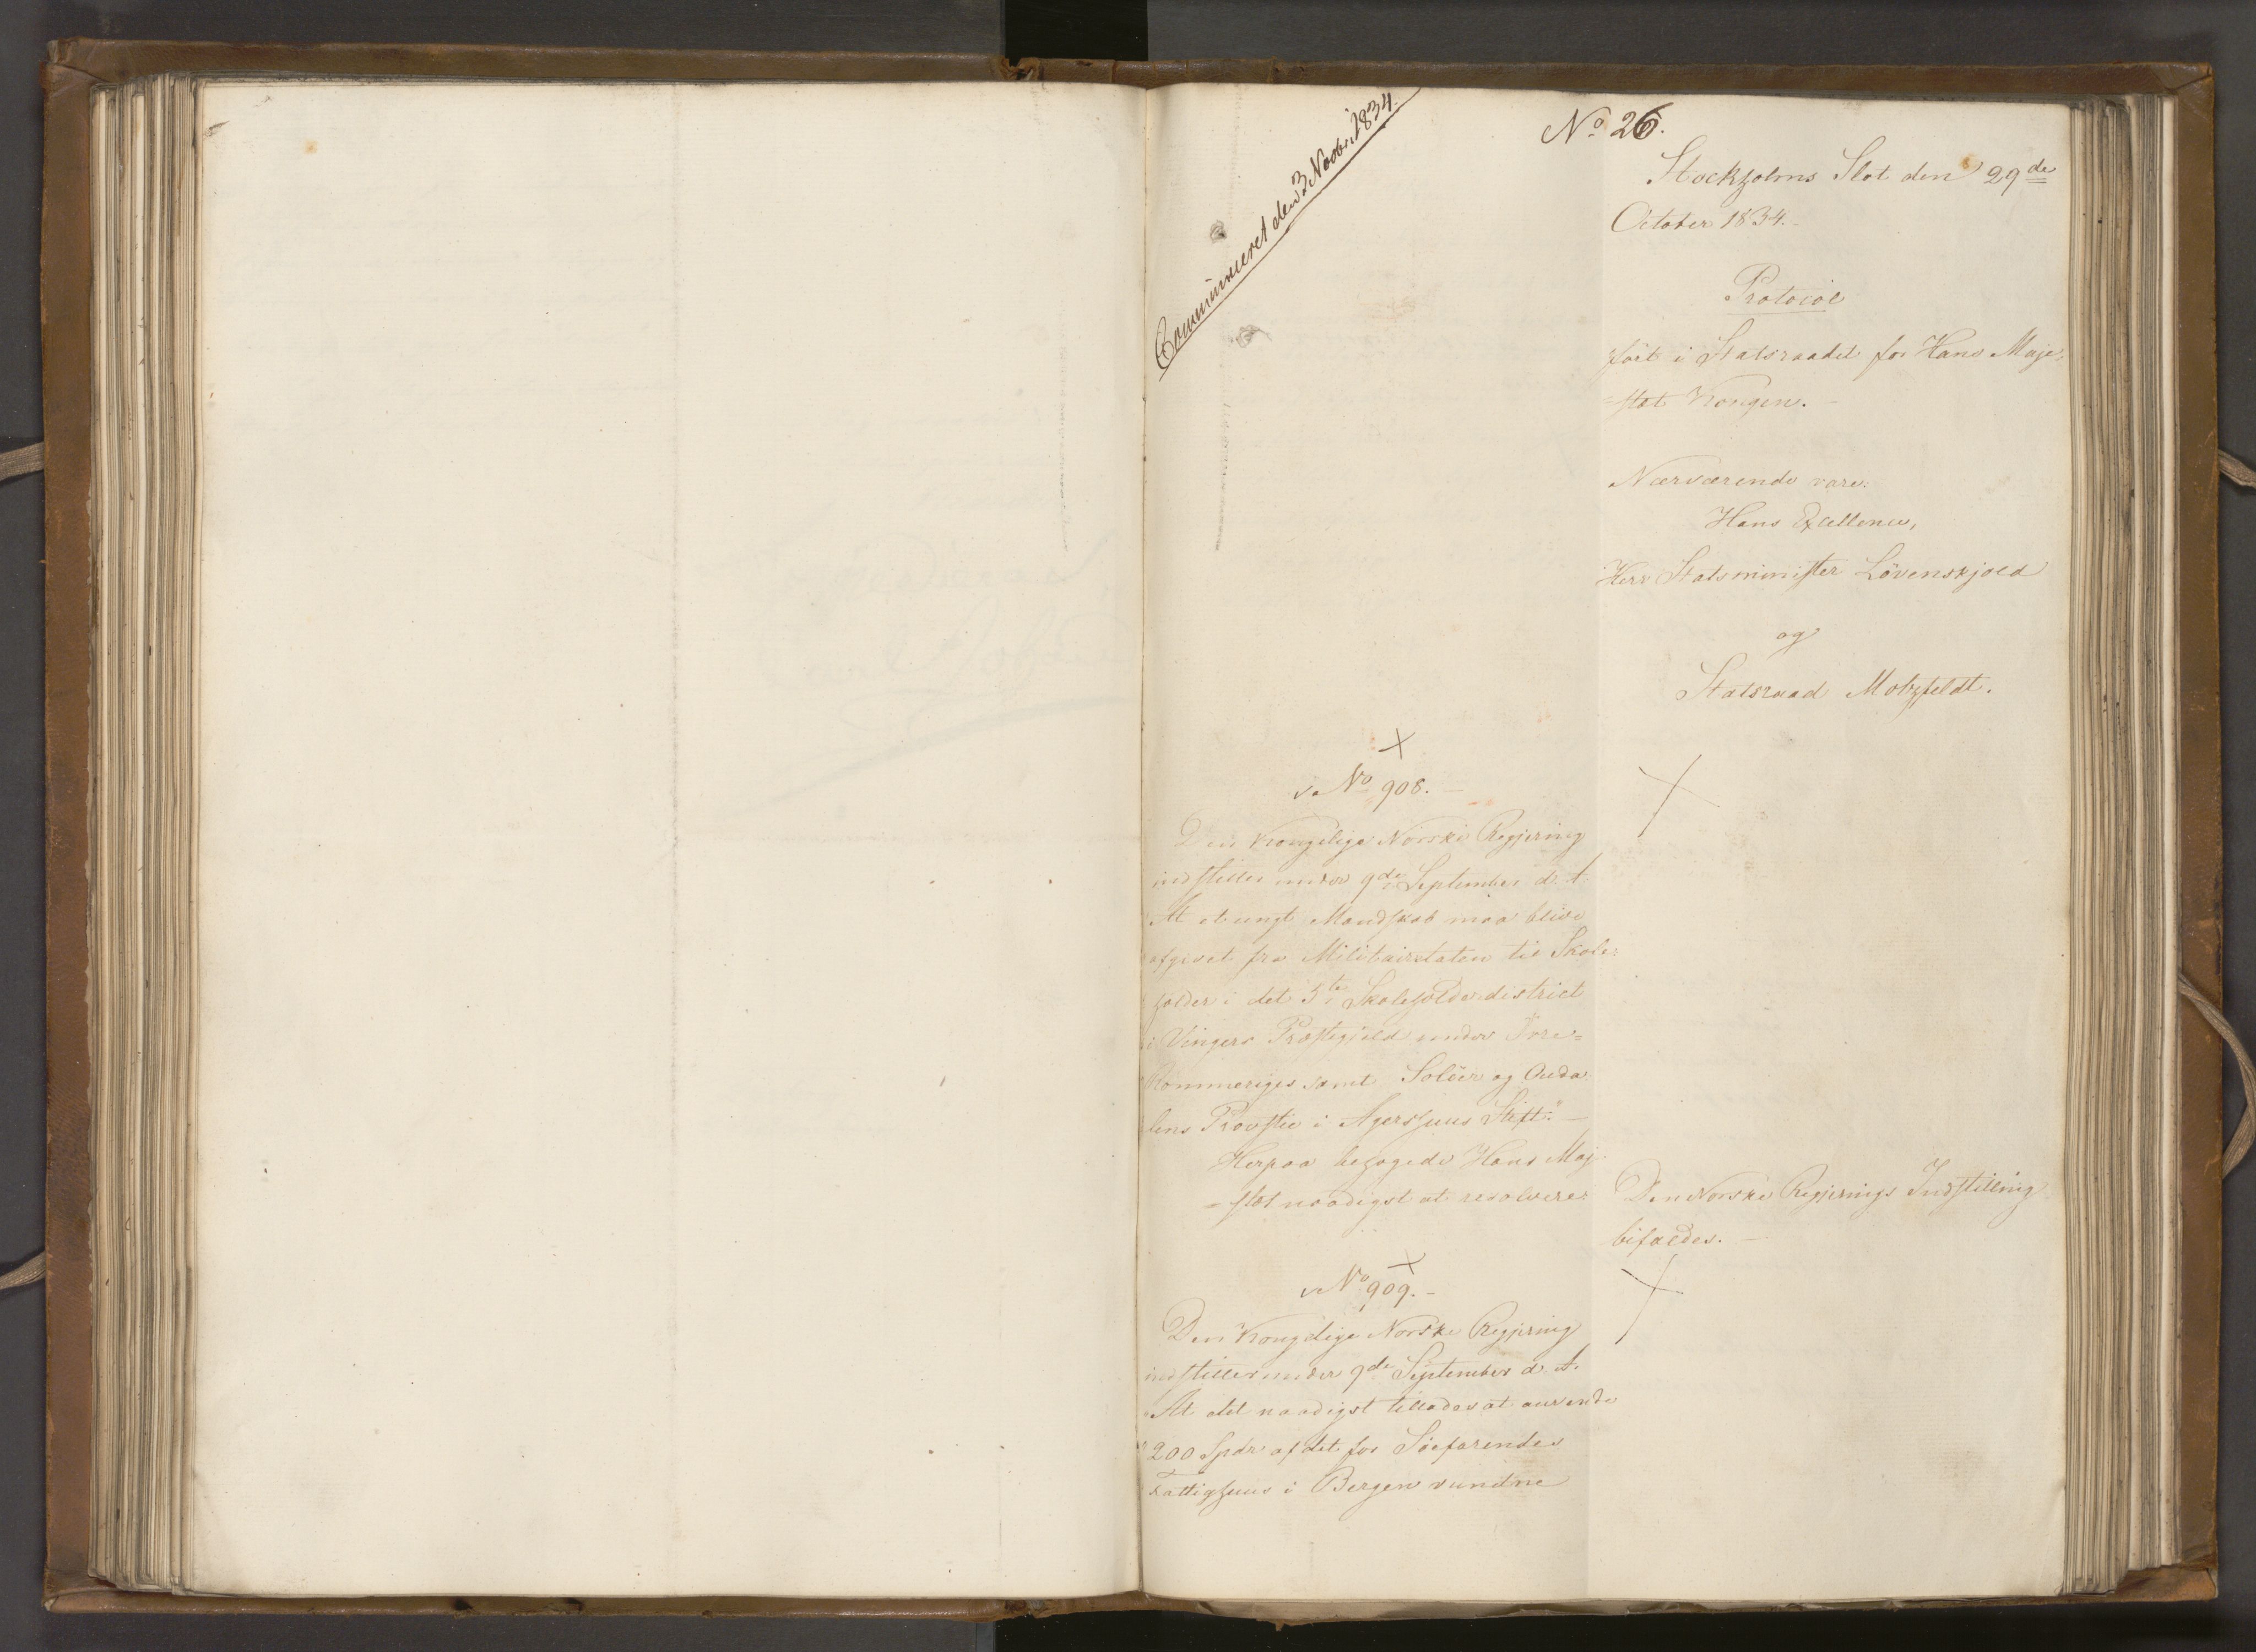 Communiceret den 3 Novbr. 1834.
No. 26.
Stockholms Slot den 29de
October 1834.
Protocol
ført i Statsraadet for Hans Maje-
=stæt Kongen.
Nærværende vare:
Hans Excellence,
Herr Statsminister Lövenskjold
og
Statsraad Motzfeldt.
No 908.
Den Kongelige Norske Regjering
indstiller under 9de September d. A.
At et ungt Mandskab maa blive
afgivet fra Militairetaten til Skole-
holder i det 5te Skoleholderdistrict
i Vingers Præstegjeld under Övre=
Rommeriges samt Solöer og Ouda
lens Provstie i Agershuus Stift." –
Herpaa behagede Hans Maj
=stæt naadigst at resolvere:
Den Norske Regjerings Indstilling
bifaldes. –
No 909. –
Den Kongelige Norske Regjering
indstiller under 9de September d. A.
At det naadigst tillades at anvende
200 Spdr af det for Söefarendes
Fattighuus i Bergen vundne